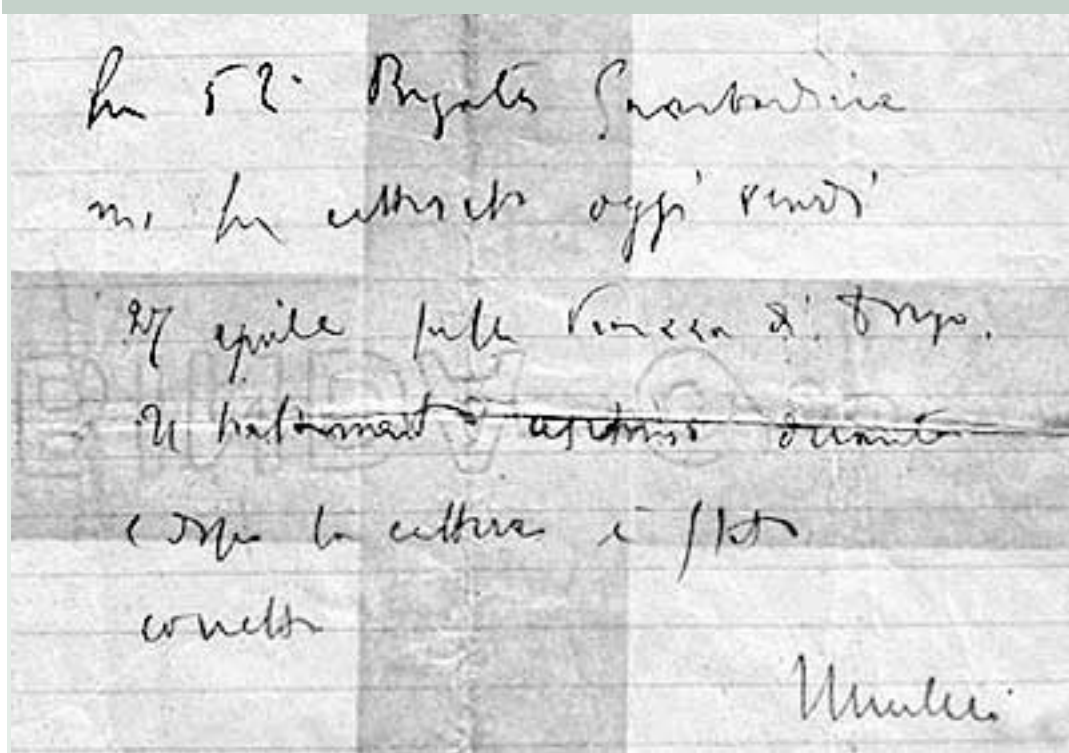 La 52ª Brigata Garibaldina
mi ha catturato oggi venerdì
27 aprile sulla Piazza di Dongo.
Il trattamento usatomi durante
e dopo la cattura è stato
corretto
Mussolini